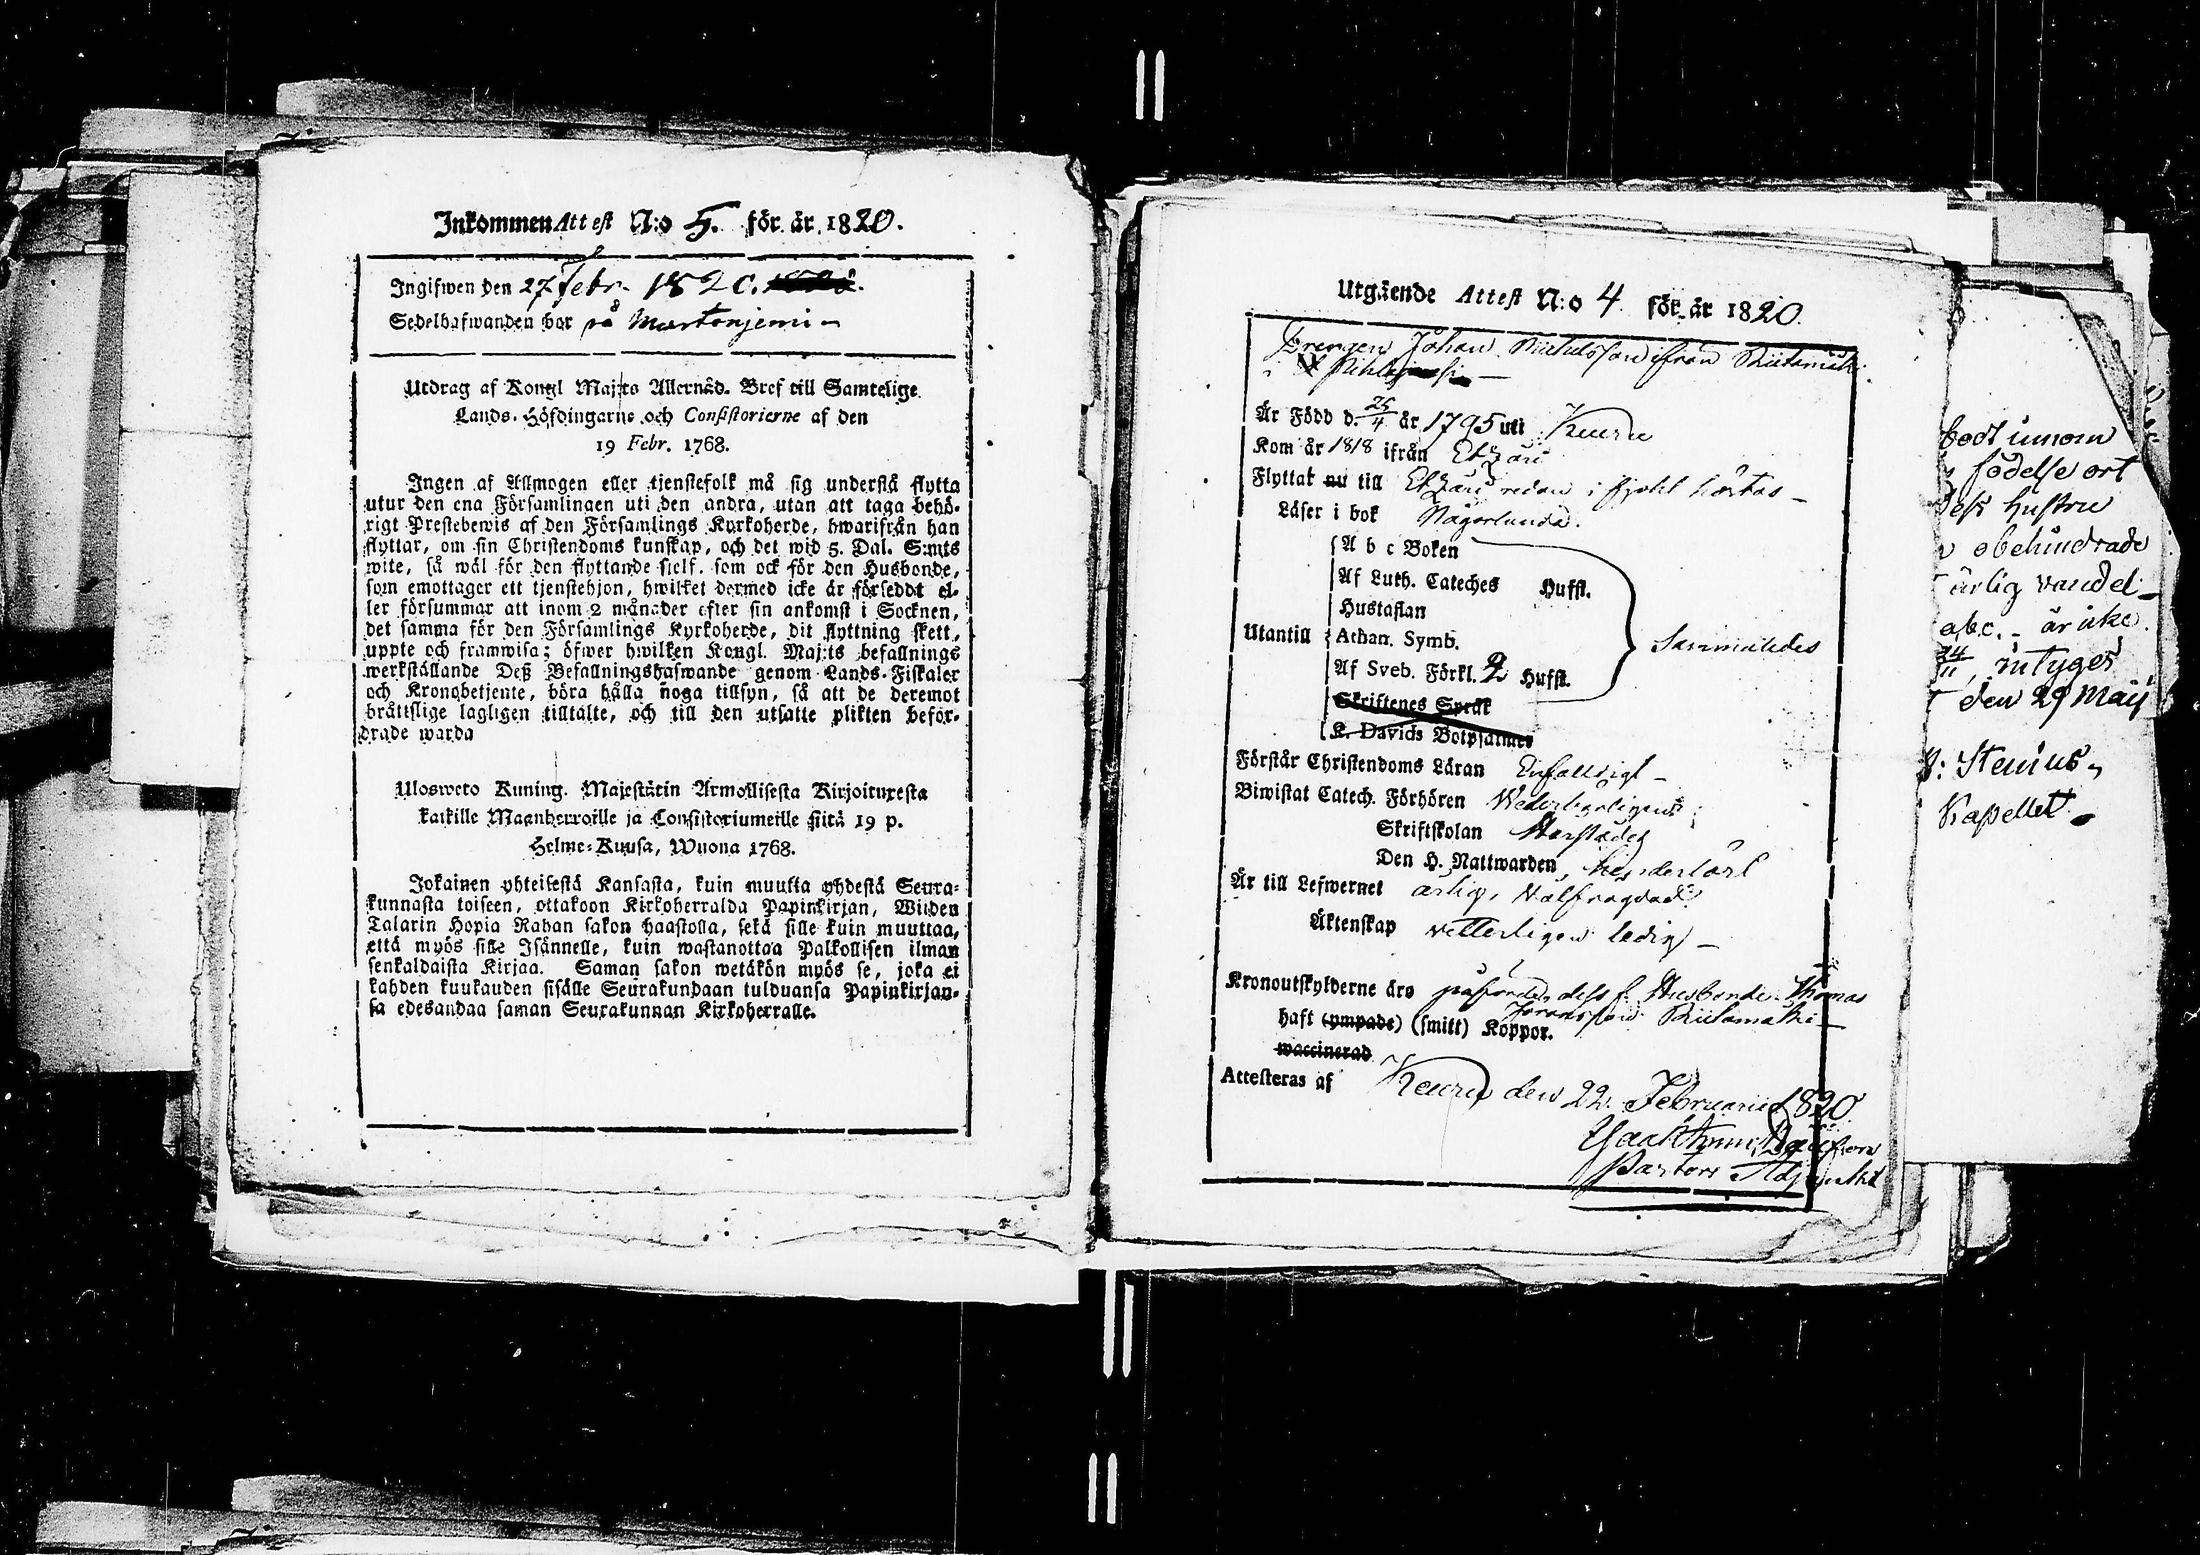 Inkommen Attest N:o 5. för år 1820.
Ingifwen den 27 Febr. 1820.
Sedelhafwanden bor på Martonjemi
Utdrag af Kongl Maj:ts Allernåd. Bref till Samtelige
Lands-Höfdingarne och Consistorierne af den
19 Febr. 1768.
Ingen af Allmogen eller tjenstefolk må sig understå flytta
utur den ena Församlingen uti den andra, utan att taga behö-
rigt Prestebewis af den Församlings Kyrkoherde, hwarifrån han
flyttar, om sin Christendoms kunskap, och det wid 5. Dal. S:mts
wite, så wäl för den flyttande sielf, som ock för den Husbonde,
som emottager ett tjenstehjon, hwilket dermed icke är förseddt el-
ler försummar att inom 2 månader efter sin ankomst i Socknen,
det samma för den Församlings Kyrkoherde, dit flyttning skett,
uppte och framwisa; öfwer hwilken Kongl. Maj:ts befallnings
werkställande Deß Befallningshafwande genom Lands-Fiskaler
och Kronobetjente, böra hålla noga tillsyn, så att de deremot
bråttslige lagligen tilltalte, och till den utsatte plikten beför-
drade warda
Ulosweto Kuning. Majestätin Armollisesta Kirjoituxesta
kaikille Maanherroille ja Consistoriumeille siitä 19 p.
Helme-Kuusa, Wuona 1768.
Jokainen yhteisestä Kansasta, kuin muutta yhdestä Seura-
kunnasta toiseen, ottakoon Kirkoherralda Papinkirjan, Wiiden
Talarin Hopia Rahan sakon haastolla, sekä sille kuin muuttaa,
että myös sille Isännelle, kuin wastanottaa Palkollisen ilman
senkaldaista Kirjaa. Saman sakon wetäkön myös se, joka ei
kahden kuukauden sisälle Seurakundaan tulduansa Papinkirjan-
sa edesandaa saman Seurakunnan Kirkoherralle.
Utgående Attest N:o 4. för år 1820.
Drengen Johan Michelsson ifrån Riitamäki
i Pihlaja
Är Född d. 25/4 år 1795 uti Keuru
Kom år 1818 ifrån Etzäri
Flyttat nu till Etzäri redan i fjohl höstas
Läser i bok Någorlunda.
A b c Boken
Af Luth. Cateches Hufst.
Hustaflan
Utantill Athan. Symb. Sammaledes
Af Sveb. Förkl. 2 Hufst.
Skriftenes Språk
K. Davids Botpsalmer
Förstår Christendoms Läran Enfalldigt
Biwistat Catech. Förhören Wederbörligen
Skriftskolan
Den H. Nattwarden
Är till Lefwernet ärlig, Wälfrägdad
Äktenskap vetterligen ledig
Kronoutskylderne äro påförde dess f. Husbonde Thomas
Johansson Riitamäki
haft (ympade) (smitt) Koppor.
waccinerad
Attesteras af Keuru den 22. Februarii 1820
Pastors Adjunkt
bodt innom
födelse ort
dess hustru
obehindrade
ärlig vandel
abc. är icke
24/11, intyges
den 29 Maij
J: Stenius
Kapellet